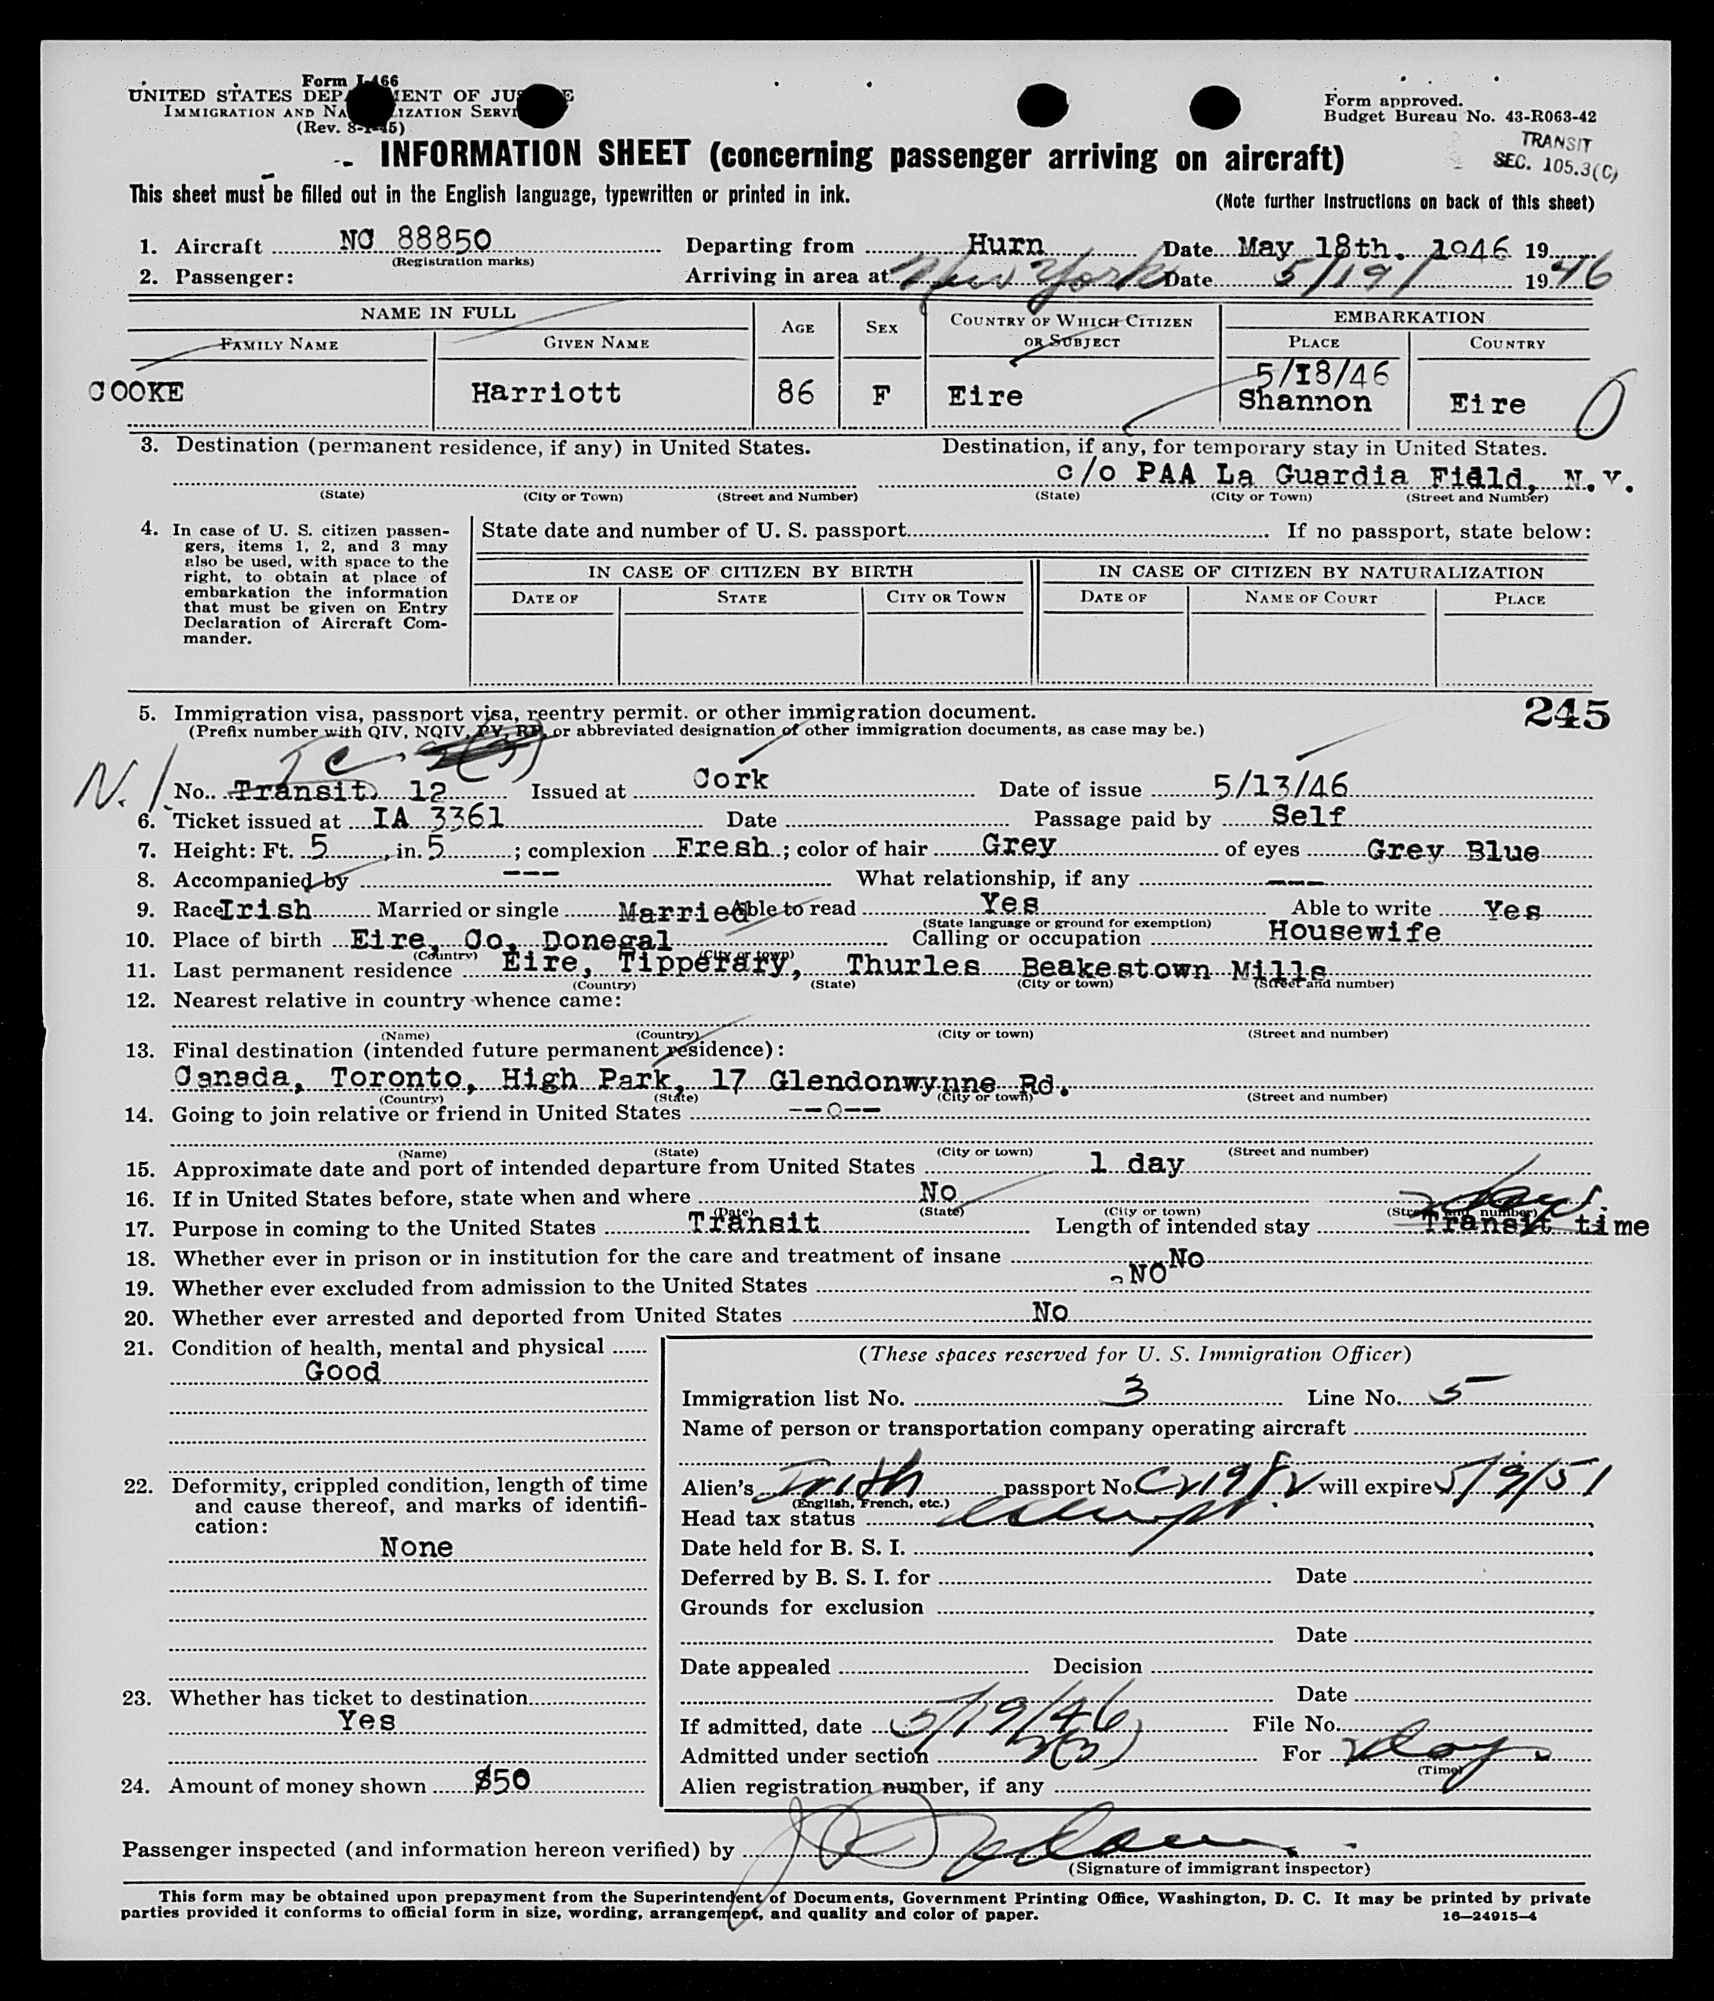 Form I-466
UNITED STATES DEPARTMENT OF JUSTICE
IMMIGRATION AND NATURALIZATION SERVICE
(Rev. 8-1-45)
Form approved.
Budget Bureau No. 43-R063-42
TRANSIT
SEC. 105.3(C)
INFORMATION SHEET (concerning passenger arriving on aircraft)
This sheet must be filled out in the English language, typewritten or printed in ink.
(Note further instructions on back of this sheet)
1. Aircraft NC 88850 Departing from Hurn Date May 18th. 1946 19
(Registration marks)
2. Passenger: Arriving in area at New York Date 5/19/ 1946
NAME IN FULL AGE SEX COUNTRY OF WHICH CITIZEN OR SUBJECT EMBARKATION
FAMILY NAME GIVEN NAME PLACE COUNTRY
5/18/46
COOKE Harriott 86 F Eire Shannon Eire
3. Destination (permanent residence, if any) in United States. Destination, if any, for temporary stay in United States.
c/o PAA La Guardia Field, N.Y.
(State) (City or Town) (Street and Number) (State) (City or Town) (Street and Number)
4. In case of U. S. citizen passengers, items 1, 2, and 3 may also be used, with space to the right, to obtain at place of embarkation the information that must be given on Entry Declaration of Aircraft Commander.
State date and number of U. S. passport If no passport, state below:
IN CASE OF CITIZEN BY BIRTH IN CASE OF CITIZEN BY NATURALIZATION
DATE OF STATE CITY OR TOWN DATE OF NAME OF COURT PLACE
245
5. Immigration visa, passport visa, reentry permit, or other immigration document.
(Prefix number with QIV, NQIV, PV, RP, or abbreviated designation of other immigration documents, as case may be.)
No. Transit 12 Issued at Cork Date of issue 5/13/46
6. Ticket issued at IA 3361 Date Passage paid by Self
7. Height: Ft. 5, in. 5; complexion Fresh; color of hair Grey of eyes Grey Blue
8. Accompanied by --- What relationship, if any ---
9. Race Irish Married or single Married Able to read Yes Able to write Yes
(State language or ground for exemption)
10. Place of birth Eire, Co, Donegal Calling or occupation Housewife
(Country) (City or town)
11. Last permanent residence Eire, Tipperary, Thurles Beakestown Mills
(Country) (State) (City or town) (Street and number)
12. Nearest relative in country whence came:
(Name) (Country) (City or town) (Street and number)
13. Final destination (intended future permanent residence):
Canada, Toronto, High Park, 17 Glendonwynne Rd.
(Country) (State) (City or town) (Street and number)
14. Going to join relative or friend in United States --o--
(Name) (State) (City or town) (Street and number)
15. Approximate date and port of intended departure from United States 1 day
16. If in United States before, state when and where No
(Date) (State) (City or town) (Street and number)
17. Purpose in coming to the United States Transit Length of intended stay Transit time
18. Whether ever in prison or in institution for the care and treatment of insane No
19. Whether ever excluded from admission to the United States NO
20. Whether ever arrested and deported from United States No
21. Condition of health, mental and physical
Good
22. Deformity, crippled condition, length of time and cause thereof, and marks of identification:
None
23. Whether has ticket to destination
Yes
24. Amount of money shown $50
(These spaces reserved for U. S. Immigration Officer)
Immigration list No. 3 Line No. 5
Name of person or transportation company operating aircraft
Alien's Irish passport No. will expire 5/9/51
(English, French, etc.)
Head tax status exempt
Date held for B. S. I.
Deferred by B. S. I. for Date
Grounds for exclusion
Date
Date appealed Decision
Date
If admitted, date 5/19/46 File No.
Admitted under section 3(3) For
(Time)
Alien registration number, if any
Passenger inspected (and information hereon verified) by
(Signature of immigrant inspector)
This form may be obtained upon prepayment from the Superintendent of Documents, Government Printing Office, Washington, D. C. It may be printed by private
parties provided it conforms to official form in size, wording, arrangement, and quality and color of paper.
16—24915-4